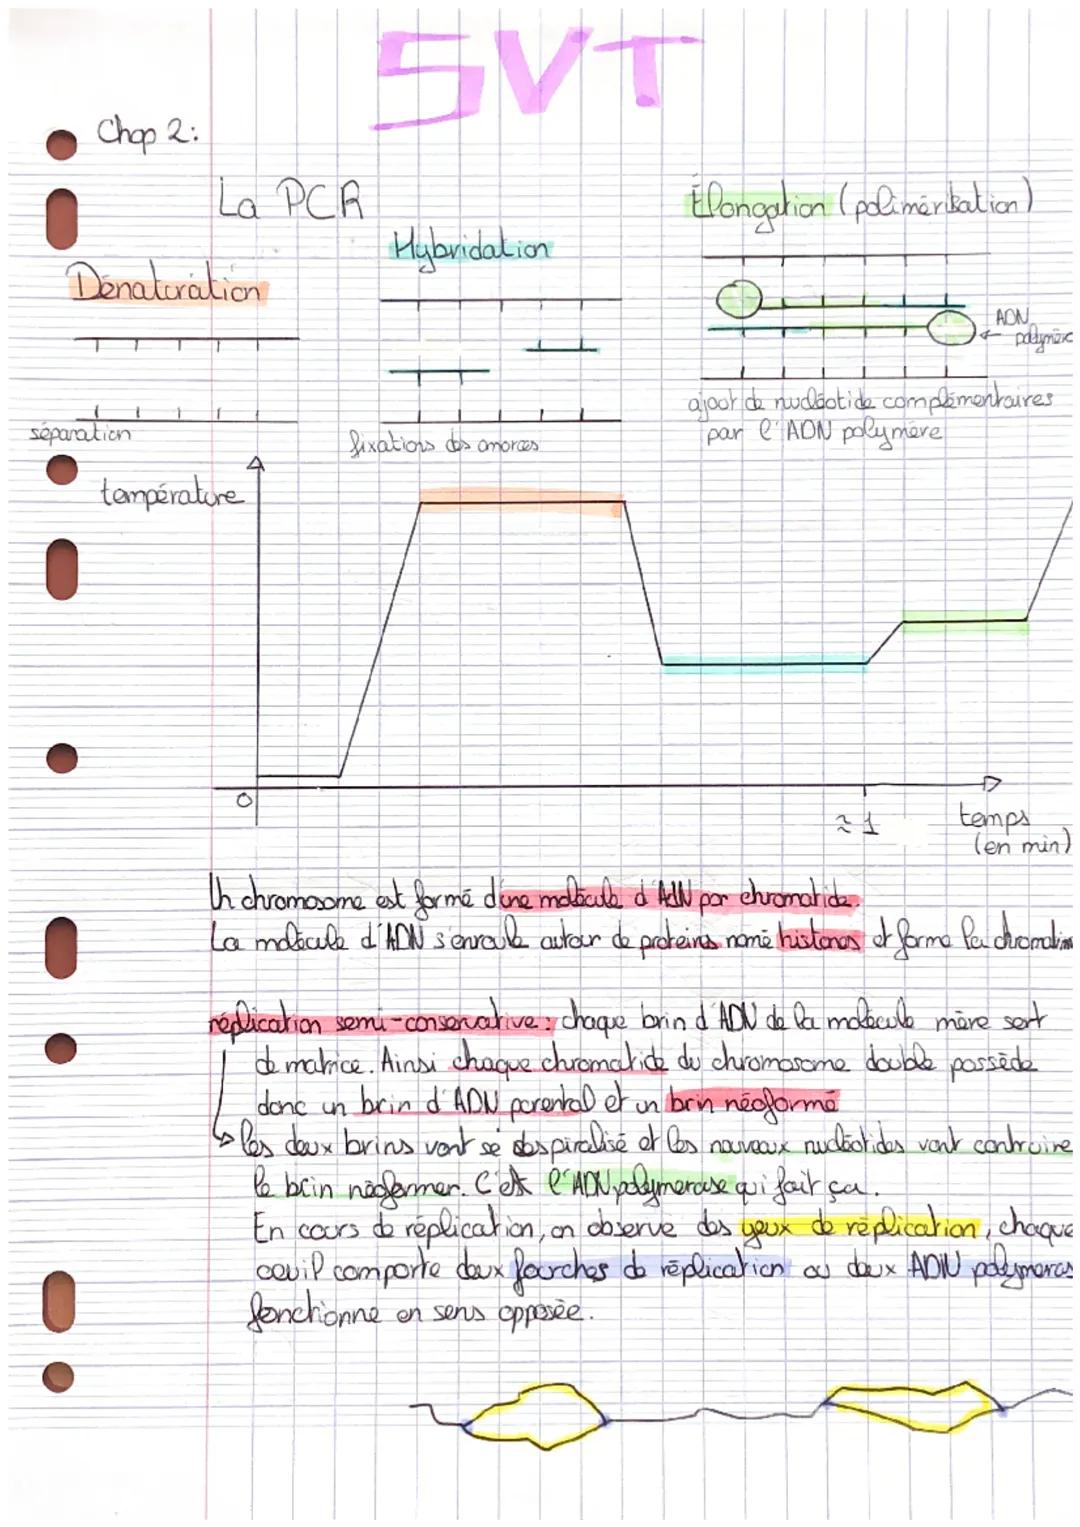 SVT
Chap 2:
La PCR
Dénaturation
séparation
Hybridation
fixations des amorces
Élongation (polimérisation)
ADN
ajout de nucléotide complémentaires
par l'ADN polymère
température
0
≈ 1
temps
(en min)
Un chromosome est formé d'une molécule d'ADN par chromatide.
La molécule d'ADN s'enroule autour de proteins nomé histones et forme la
réplication semi-conservative: chaque brin d'ADN de la molécule mère sert
de matrice. Ainsi chaque chromatide du chromosome double possède
donc un brin d'ADN parental et un brin néoformé
les deux brins vont se despiralisé et les nouveaux nucléotides vont contruire
le brin néoformer. C'est l'ADN polymerase qui fait ça.
En cours de réplication, on observe des yeux de réplication, chaque
oeuil comporte deux fourches de réplication où deux ADN
fonctionne en sens opposée.